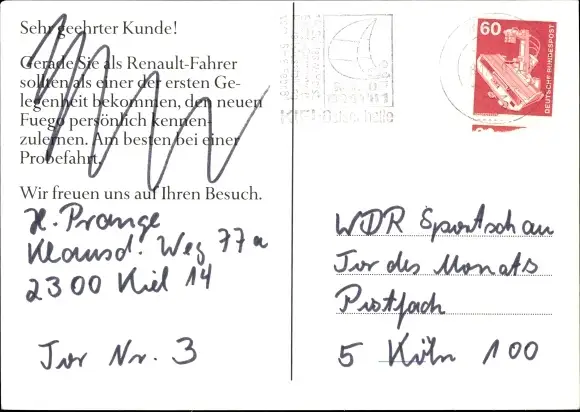 Sehr geehrter Kunde!
Gerade Sie als Renault-Fahrer
sollten als einer der ersten Ge-
legenheit bekommen, den neuen
Fuego persönlich kennen-
zulernen. Am besten bei einer
Probefahrt.
Wir freuen uns auf Ihren Besuch.
H. Prange
Klausd. Weg 77a
2300 Kiel 14
Tor Nr. 3
60
DEUTSCHE BUNDESPOST
WDR Sportschau
Tor des Monats
Postfach
5 Köln 100